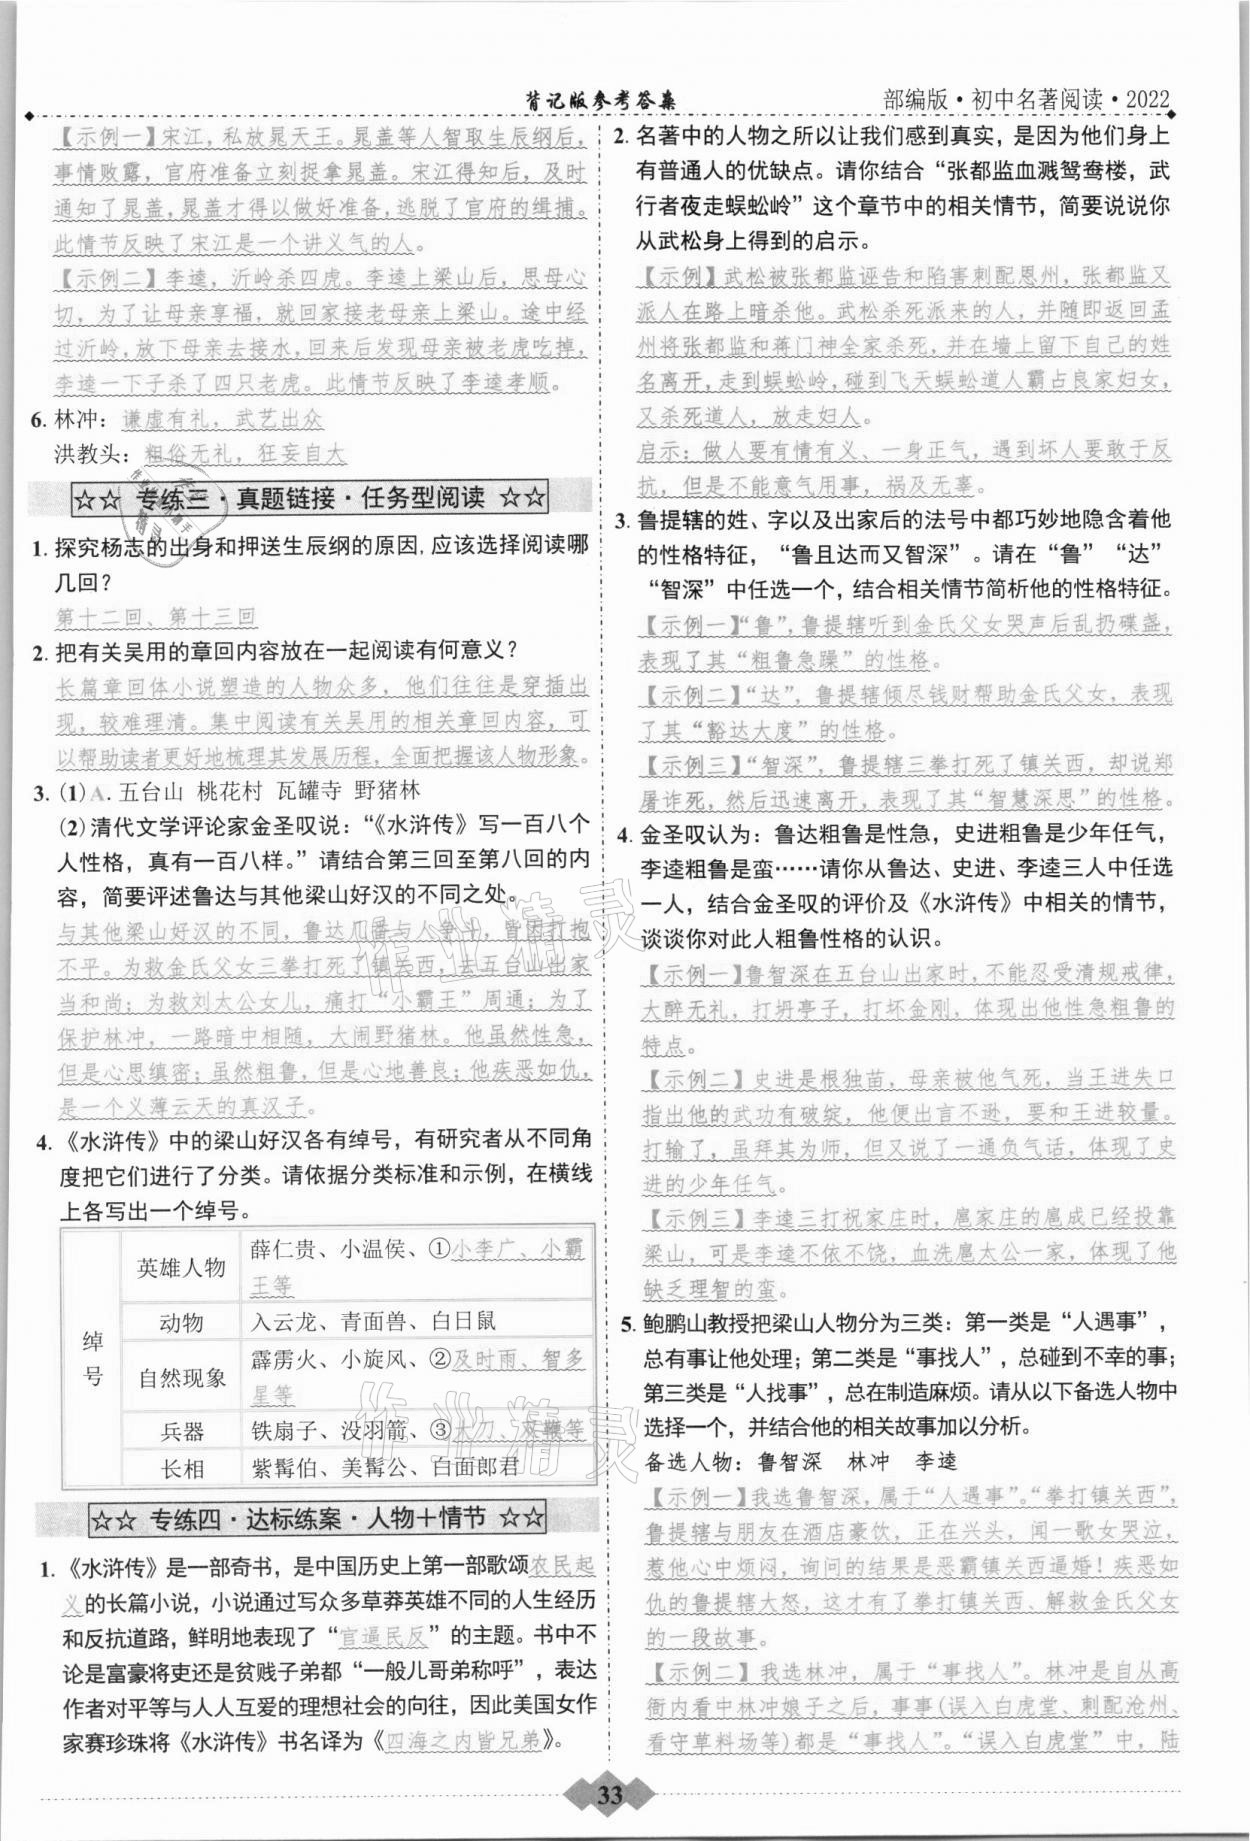 背记版参考答案
部编版·初中名著阅读·2022
【示例一】宋江，私放晁天王。晁盖等人智取生辰纲后，
事情败露，官府准备立刻捉拿晁盖。宋江得知后，及时
通知了晁盖，晁盖才得以做好准备，逃脱了官府的缉捕。
此情节反映了宋江是一个讲义气的人。
【示例二】李逵，沂岭杀四虎。李逵上梁山后，思母心
切，为了让母亲享福，就回家接老母亲上梁山。途中经
过沂岭，放下母亲去接水，回来后发现母亲被老虎吃掉，
李逵一下子杀了四只老虎。此情节反映了李逵孝顺。
6. 林冲：谦虚有礼，武艺出众
洪教头：粗俗无礼，狂妄自大
☆☆ 专练三·真题链接·任务型阅读 ☆☆
1. 探究杨志的出身和押送生辰纲的原因，应该选择阅读哪
几回？
第十二回、第十三回
2. 把有关吴用的章回内容放在一起阅读有何意义？
长篇章回体小说塑造的人物众多，他们往往是穿插出
现，较难理清。集中阅读有关吴用的相关章回内容，可
以帮助读者更好地梳理其发展历程，全面把握该人物形象。
3. (1)A. 五台山 桃花村 瓦罐寺 野猪林
(2)清代文学评论家金圣叹说：“《水浒传》写一百八个
人性格，真有一百八样。”请结合第三回至第八回的内
容，简要评述鲁达与其他梁山好汉的不同之处。
与其他梁山好汉的不同，鲁达几番与人争斗，皆因打抱
不平。为救金氏父女三拳打死了镇关西，去五台山出家
当和尚；为救刘太公女儿，痛打“小霸王”周通；为了
保护林冲，一路暗中相随，大闹野猪林。他虽然性急，
但是心思缜密；虽然粗鲁，但是心地善良；他疾恶如仇，
是一个义薄云天的真汉子。
4. 《水浒传》中的梁山好汉各有绰号，有研究者从不同角
度把它们进行了分类。请依据分类标准和示例，在横线
上各写出一个绰号。
绰号
英雄人物 薛仁贵、小温侯、①小李广、小霸
王等
动物 入云龙、青面兽、白日鼠
自然现象 霹雳火、小旋风、②及时雨、智多
星等
兵器 铁扇子、没羽箭、③大刀、双鞭等
长相 紫髯伯、美髯公、白面郎君
☆☆ 专练四·达标练案·人物＋情节 ☆☆
1. 《水浒传》是一部奇书，是中国历史上第一部歌颂农民起
义的长篇小说，小说通过写众多草莽英雄不同的人生经历
和反抗道路，鲜明地表现了“官逼民反”的主题。书中不
论是富豪将吏还是贫贱子弟都“一般儿哥弟称呼”，表达
作者对平等与人人互爱的理想社会的向往，因此美国女作
家赛珍珠将《水浒传》书名译为《四海之内皆兄弟》。
2. 名著中的人物之所以让我们感到真实，是因为他们身上
有普通人的优缺点。请你结合“张都监血溅鸳鸯楼，武
行者夜走蜈蚣岭”这个章节中的相关情节，简要说说你
从武松身上得到的启示。
【示例】武松被张都监诬告和陷害刺配恩州，张都监又
派人在路上暗杀他。武松杀死派来的人，并随即返回孟
州将张都监和蒋门神全家杀死，并在墙上留下自己的姓
名离开，走到蜈蚣岭，碰到飞天蜈蚣道人霸占良家妇女，
又杀死道人，放走妇人。
启示：做人要有情有义、一身正气，遇到坏人要敢于反
抗，但是不能意气用事，祸及无辜。
3. 鲁提辖的姓、字以及出家后的法号中都巧妙地隐含着他
的性格特征，“鲁且达而又智深”。请在“鲁”“达”
“智深”中任选一个，结合相关情节简析他的性格特征。
【示例一】“鲁”，鲁提辖听到金氏父女哭声后乱扔碟盏，
表现了其“粗鲁急躁”的性格。
【示例二】“达”，鲁提辖倾尽钱财帮助金氏父女，表现
了其“豁达大度”的性格。
【示例三】“智深”，鲁提辖三拳打死了镇关西，却说郑
屠诈死，然后迅速离开，表现了其“智慧深思”的性格。
4. 金圣叹认为：鲁达粗鲁是性急，史进粗鲁是少年任气，
李逵粗鲁是蛮……请你从鲁达、史进、李逵三人中任选
一人，结合金圣叹的评价及《水浒传》中相关的情节，
谈谈你对此人粗鲁性格的认识。
【示例一】鲁智深在五台山出家时，不能忍受清规戒律，
大醉无礼，打坍亭子，打坏金刚，体现出他性急粗鲁的
特点。
【示例二】史进是根独苗，母亲被他气死，当王进失口
指出他的武功有破绽，他便出言不逊，要和王进较量。
打输了，虽拜其为师，但又说了一通负气话，体现了史
进的少年任气。
【示例三】李逵三打祝家庄时，扈家庄的扈成已经投靠
梁山，可是李逵不依不饶，血洗扈太公一家，体现了他
缺乏理智的蛮。
5. 鲍鹏山教授把梁山人物分为三类：第一类是“人遇事”，
总有事让他处理；第二类是“事找人”，总碰到不幸的事；
第三类是“人找事”，总在制造麻烦。请从以下备选人物中
选择一个，并结合他的相关故事加以分析。
备选人物：鲁智深 林冲 李逵
【示例一】我选鲁智深，属于“人遇事”。“拳打镇关西”，
鲁提辖与朋友在酒店豪饮，正在兴头，闻一歌女哭泣，
惹他心中烦闷，询问的结果是恶霸镇关西逼婚！疾恶如
仇的鲁提辖大怒，这才有了拳打镇关西、解救金氏父女
的一段故事。
【示例二】我选林冲，属于“事找人”。林冲是自从高
衙内看中林冲娘子之后，事事(误入白虎堂、刺配沧州、
看守草料场等)都是“事找人”。“误入白虎堂”中，陆
33
作业精灵
作业精灵